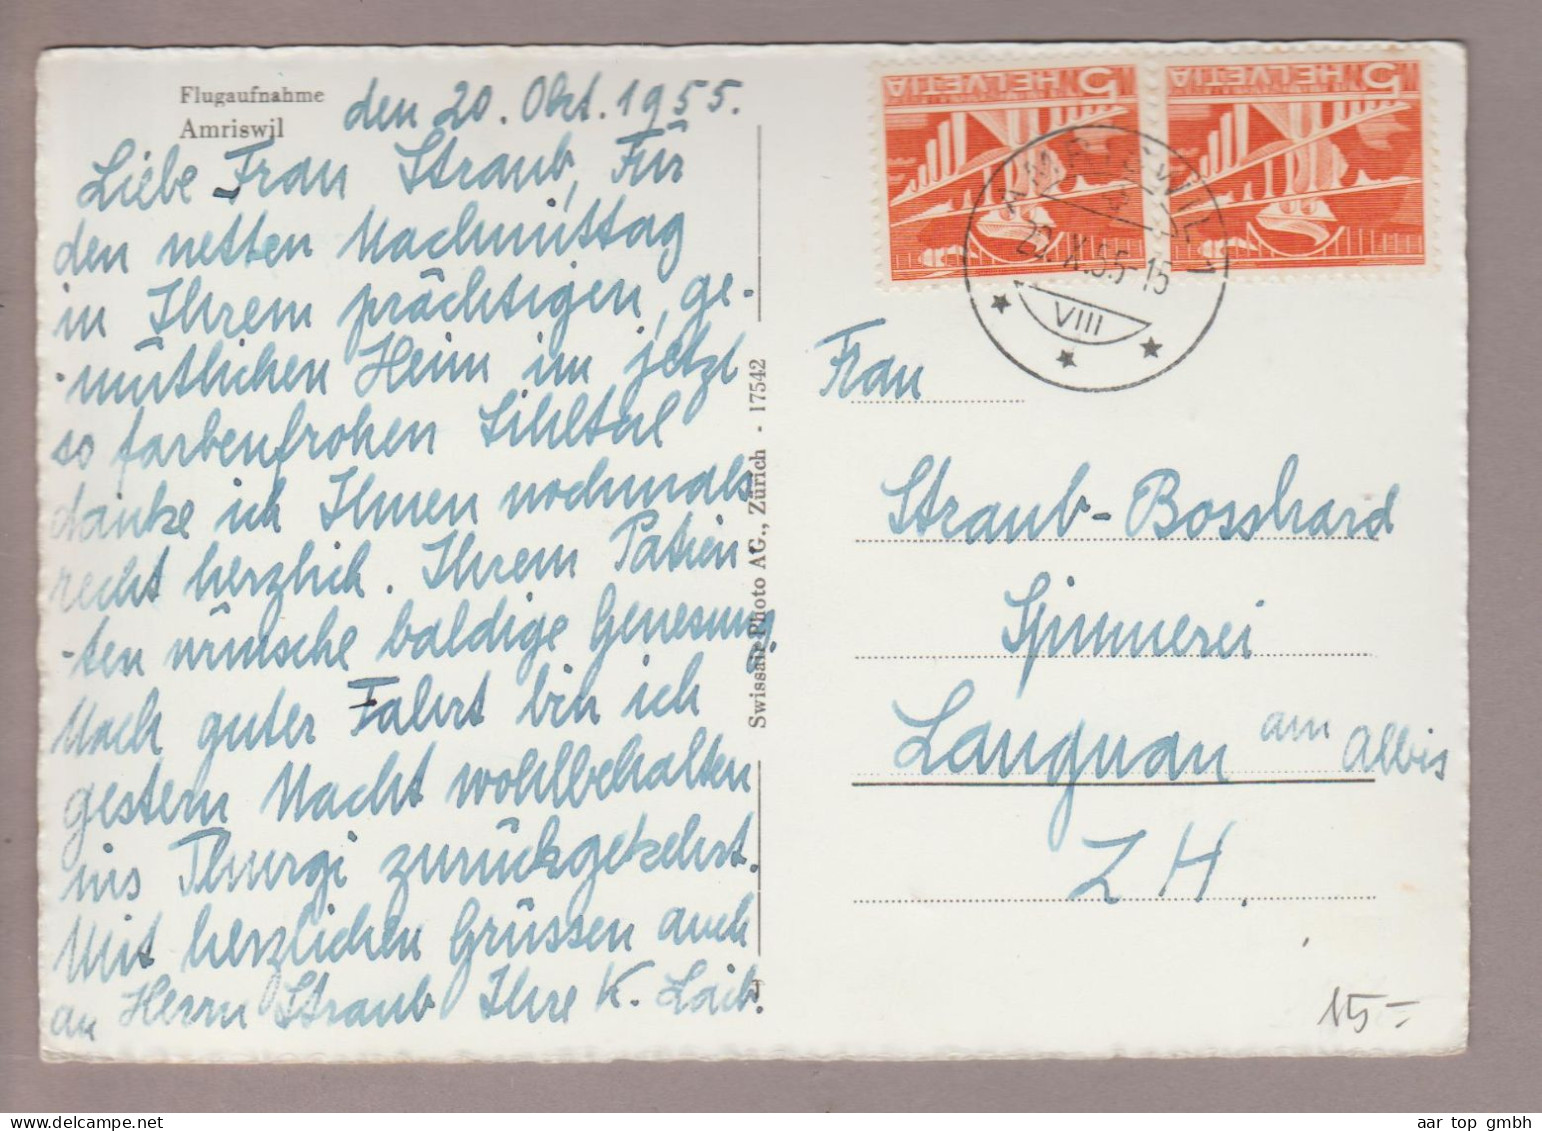 Flugaufnahme
Amriswil
den 20. Okt. 1955.
Liebe Frau Straub, Für
den netten Nachmittag
in Ihrem prächtigen, ge-
mütlichen Heim im jetzt
so farbenfrohen Sihltal
danke ich Ihnen nochmals
recht herzlich. Ihrem Patien
-ten wünsche baldige Genesung
Nach guter Fahrt bin ich
gestern Nacht wohlbehalten
ins Thurgi zurückgekehrt.
Mit herzlichen Grüssen auch
an Herrn Straub Ihre K. Laib.
Swissair-Photo AG., Zürich · 17542
HELVETIA 5
HELVETIA 5
AMRISWIL 1
X.55-15
VIII
Frau
Straub-Bosshard
Spinnerei
Langnau am Albis
ZH.
15-
aar top gmbh